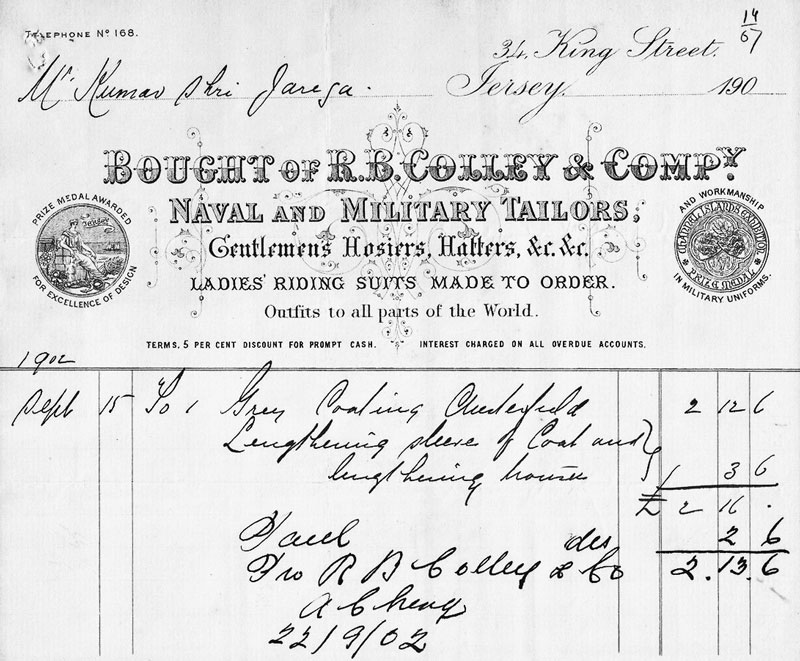 TELEPHONE Nº 168.
14
67
34, King Street.
Mr. Kumar Shri Jarega.
Jersey. 190
BOUGHT OF R.B. COLLEY & COMPY.
NAVAL AND MILITARY TAILORS,
Gentlemen's Hosiers, Hatters, &c. &c.
LADIES' RIDING SUITS MADE TO ORDER.
Outfits to all parts of the World.
PRIZE MEDAL AWARDED
FOR EXCELLENCE OF DESIGN
AND WORKMANSHIP
CHANNEL ISLANDS EXHIBITION
PRIZE MEDAL
IN MILITARY UNIFORMS.
TERMS, 5 PER CENT DISCOUNT FOR PROMPT CASH. INTEREST CHARGED ON ALL OVERDUE ACCOUNTS.
1902
Sept 15 To 1 Grey Coating Chesterfield 2 12 6
Lengthening sleeves of Coat and
lengthening 3 6
£ 2 16 .
dis 2 6
Pro R B Colley & Co 2. 13. 6
22/9/02